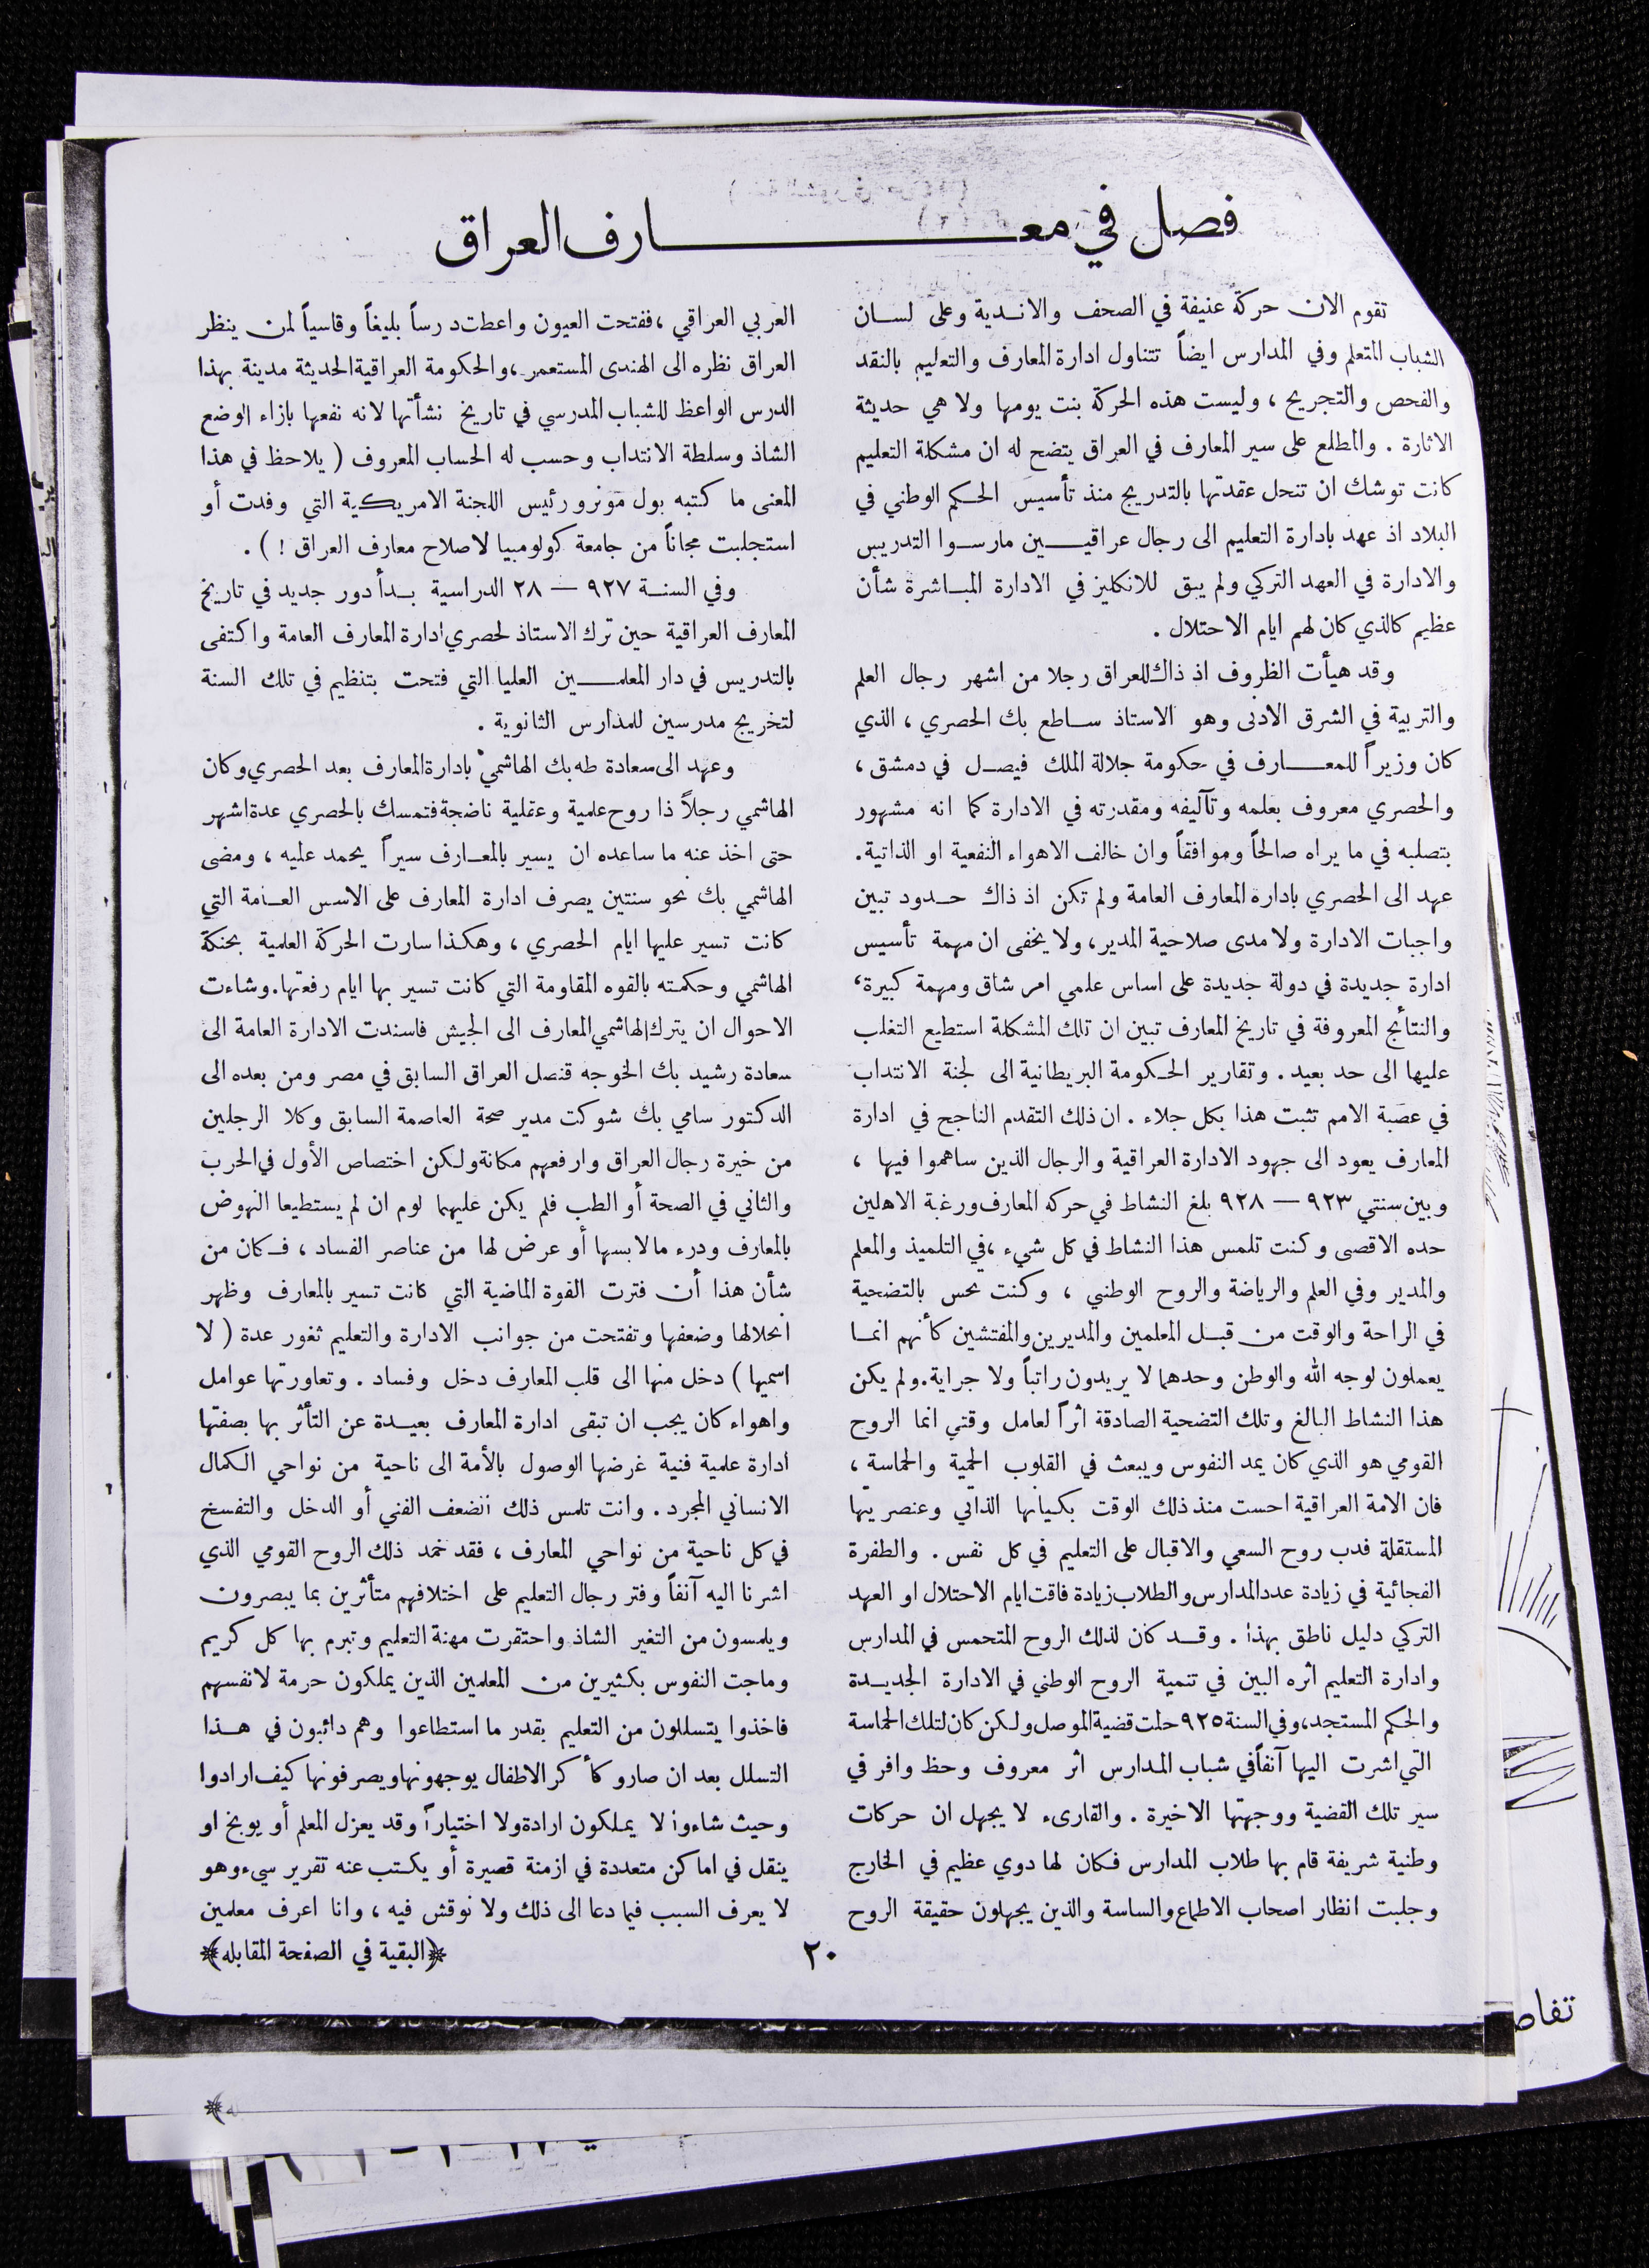 فصل في معـــــــارف العراق
تقوم الان حركة عنيفة في الصحف والانـدية وعلى لسـان
الشباب المتعلم وفي المدارس ايضاً تتناول ادارة المعارف والتعليم بالنقد
والفحص والتجريح ، وليست هذه الحركة بنت يومها ولا هي حديثة
الاثارة . والمطلع على سير المعارف في العراق يتضح له ان مشكلة التعليم
كانت توشك ان تنحل عقدتها بالتدريج منذ تأسيس الحكم الوطني في
البلاد اذ عهد بادارة التعليم الى رجال عراقيـــين مارسـوا التدريس
والادارة في العهد التركي ولم يبق للانكليز في الادارة المبـاشرة شأن
عظيم كالذي كان لهم ايام الاحتلال .
وقد هيأت الظروف اذ ذاك للعراق رجلا من اشهر رجال العلم
والتربية في الشرق الادنى وهو الاستاذ سـاطع بك الحصري ، الذي
كان وزيراً للمعـــارف في حكومة جلالة الملك فيصـل في دمشق ،
والحصري معروف بعلمه وتآليفه ومقدرته في الادارة كما انه مشهور
بتصلبه في ما يراه صالحاً وموافقاً وان خالف الاهواء النفعية او الذاتية.
عهد الى الحصري بادارة المعارف العامة ولم تكن اذ ذاك حـدود تبين
واجبات الادارة ولا مدى صلاحية المدير، ولا يخفى ان مهمة تأسيس
ادارة جديدة في دولة جديدة على اساس علمي امر شاق ومهمة كبيرة،
والنتائج المعروفة في تاريخ المعارف تبين ان تلك المشكلة استطيع التغلب
عليها الى حد بعيد . وتقارير الحكومة البريطانية الى لجنة الانتداب
في عصبة الامم تثبت هذا بكل جلاء . ان ذلك التقدم الناجح في ادارة
المعارف يعود الى جهود الادارة العراقية والرجال الذين ساهموا فيها ،
وبين سنتي ٩٢٣ — ٩٢٨ بلغ النشاط في حركه المعارف ورغبة الاهلين
حده الاقصى وكنت تلمس هذا النشاط في كل شيء ،في التلميذ والمعلم
والمدير وفي العلم والرياضة والروح الوطني ، وكنت تحس بالتضحية
في الراحة والوقت من قبـل المعلمين والمديرين والمفتشين كأنهم انمـا
يعملون لوجه الله والوطن وحدهما لا يريدون راتباً ولا جراية.ولم يكن
هذا النشاط البالغ وتلك التضحية الصادقة اثراً لعامل وقتي انما الروح
القومي هو الذي كان يمد النفوس ويبعث في القلوب الحمية والحماسة ،
فان الامة العراقية احست منذ ذلك الوقت بكيانها الذاتي وعنصريتها
المستقلة فدب روح السعي والاقبال على التعليم في كل نفس . والطفرة
الفجائية في زيادة عدد المدارس والطلاب زيادة فاقت ايام الاحتلال او العهد
التركي دليل ناطق بهذا . وقـد كان لذلك الروح المتحمس في المدارس
وادارة التعليم اثره البين في تنمية الروح الوطني في الادارة الجديـدة
والحكم المستجد،وفي السنة ٩٢٥ حلت قضية الموصل ولكن كان لتلك الحماسة
التي اشرت اليها آنفاً في شباب المدارس اثر معروف وحظ وافر في
سير تلك القضية ووجهتها الاخيرة . والقارىء لا يجهل ان حركات
وطنية شريفة قام بها طلاب المدارس فكان لها دوي عظيم في الخارج
وجلبت انظار اصحاب الاطماع والساسة والذين يجهلون حقيقة الروح
العربي العراقي ،ففتحت العيون واعطت درساً بليغاً وقاسياً لمن ينظر
العراق نظره الى الهندى المستعمر ،والحكومة العراقية الحديثة مدينة بهذا
الدرس الواعظ للشباب المدرسي في تاريخ نشأتها لانه نفعها بازاء الوضع
الشاذ وسلطة الانتداب وحسب له الحساب المعروف ( يلاحظ في هذا
المعنى ما كتبه بول مونرو رئيس اللجنة الامريكية التي وفدت أو
استجلبت مجاناً من جامعة كولومبيا لاصلاح معارف العراق ! ) .
وفي السنـة ٩٢٧ — ٢٨ الدراسية بـدأ دور جديد في تاريخ
المعارف العراقية حين ترك الاستاذ لحصري ادارة المعارف العامة واكتفى
بالتدريس في دار المعلمـــين العليا التي فتحت بتنظيم في تلك السنة
لتخريج مدرسين للمدارس الثانوية .
وعهد الى سعادة طه بك الهاشمي بادارة المعارف بعد الحصري وكان
الهاشمي رجلاً ذا روح علمية وعقلية ناضجة فتمسك بالحصري عدة اشهر
حتى اخذ عنه ما ساعده ان يسير بالمعـارف سيراً يحمد عليه ، ومضى
الهاشمي بك نحو سنتين يصرف ادارة المعارف على الاسس العـامة التي
كانت تسير عليها ايام الحصري ، وهكذا سارت الحركة العلمية بحنكة
الهاشمي وحكمته بالقوه المقاومة التي كانت تسير بها ايام رفعتها.وشاءت
الاحوال ان يترك الهاشمي المعارف الى الجيش فاسندت الادارة العامة الى
سعادة رشيد بك الخوجه قنصل العراق السابق في مصر ومن بعده الى
الدكتور سامي بك شوكت مدير صحة العاصمة السابق وكلا الرجلين
من خيرة رجال العراق وارفعهم مكانة ولكن اختصاص الأول في الحرب
والثاني في الصحة أو الطب فلم يكن عليهما لوم ان لم يستطيعا النهوض
بالمعارف ودرء ما لابسها أو عرض لها من عناصر الفساد ، فـكان من
شأن هذا أن فترت القوة الماضية التي كانت تسير بالمعارف وظهر
انحلالها وضعفها وتفتحت من جوانب الادارة والتعليم ثغور عدة ( لا
اسميها ) دخل منها الى قلب المعارف دخل وفساد . وتعاورتها عوامل
واهواء كان يجب ان تبقى ادارة المعارف بعيـدة عن التأثر بها بصفتها
ادارة علمية فنية غرضها الوصول بالأمة الى ناحية من نواحي الكمال
الانساني المجرد . وانت تلمس ذلك الضعف الفني أو الدخل والتفسخ
في كل ناحية من نواحي المعارف ، فقد خمد ذلك الروح القومي الذي
اشرنا اليه آنفاً وفتر رجال التعليم على اختلافهم متأثرين بما يبصرون
ويلمسون من التغير الشاذ واحتقرت مهنة التعليم وتبرم بها كل كريم
وماجت النفوس بكثيرين من المعلمين الذين يملكون حرمة لانفسهم
فاخذوا يتسللون من التعليم بقدر ما استطاعوا وهم دائبون في هـذا
التسلل بعد ان صارو كأ كر الاطفال يوجهونها ويصرفونها كيف ارادوا
وحيث شاءوا لا يملكون ارادة ولا اختياراً وقد يعزل المعلم أو يوبخ او
ينقل في اماكن متعددة في ازمنة قصيرة أو يكتب عنه تقرير سيء وهو
لا يعرف السبب فيما دعا الى ذلك ولا نوقش فيه ، وانا اعرف معلمين
﴿البقية في الصفحة المقابله﴾
٢٠
تفاص